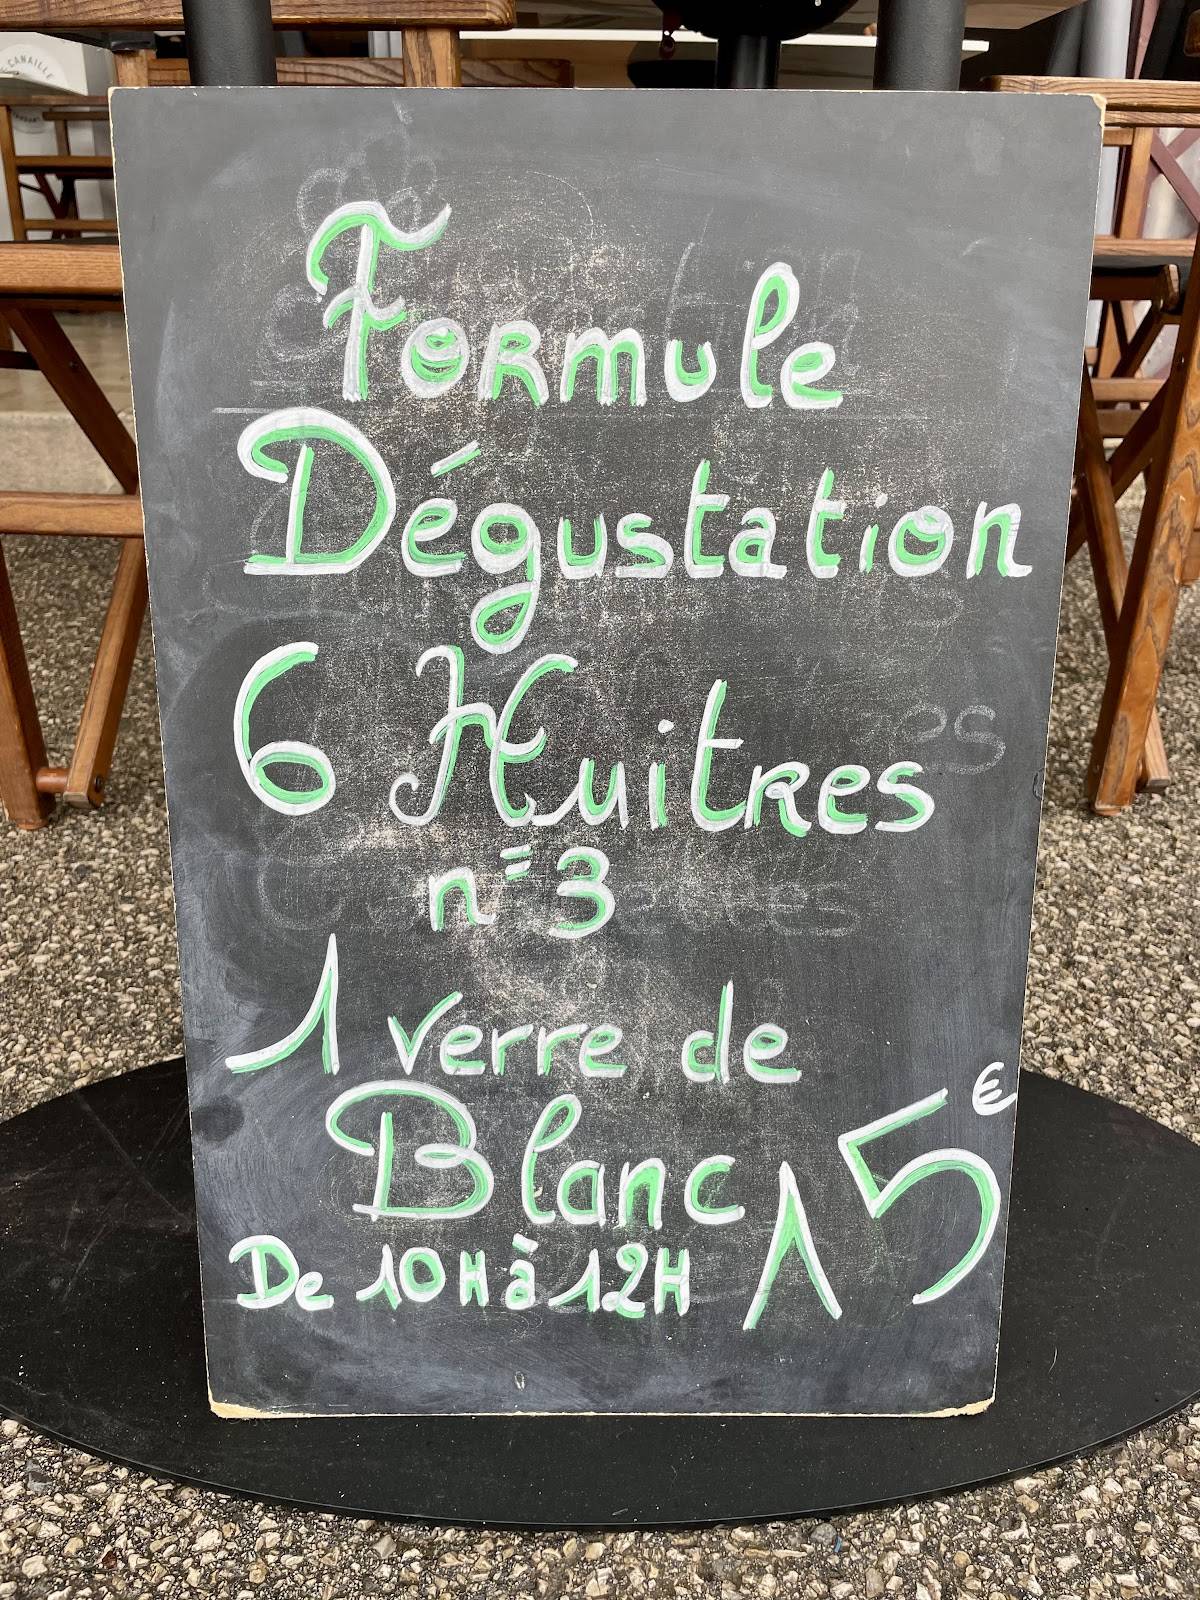 CANAILLE
Formule
Dégustation
6 Huitres
n° 3
1 verre de
Blanc
De 10H à 12H
15€